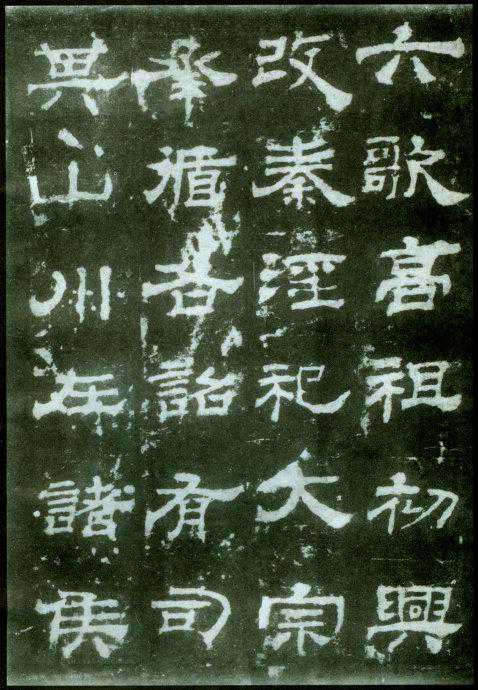 六歌高祖初興
改秦淫祀大宗
承循各詔有司
其山川在諸侯